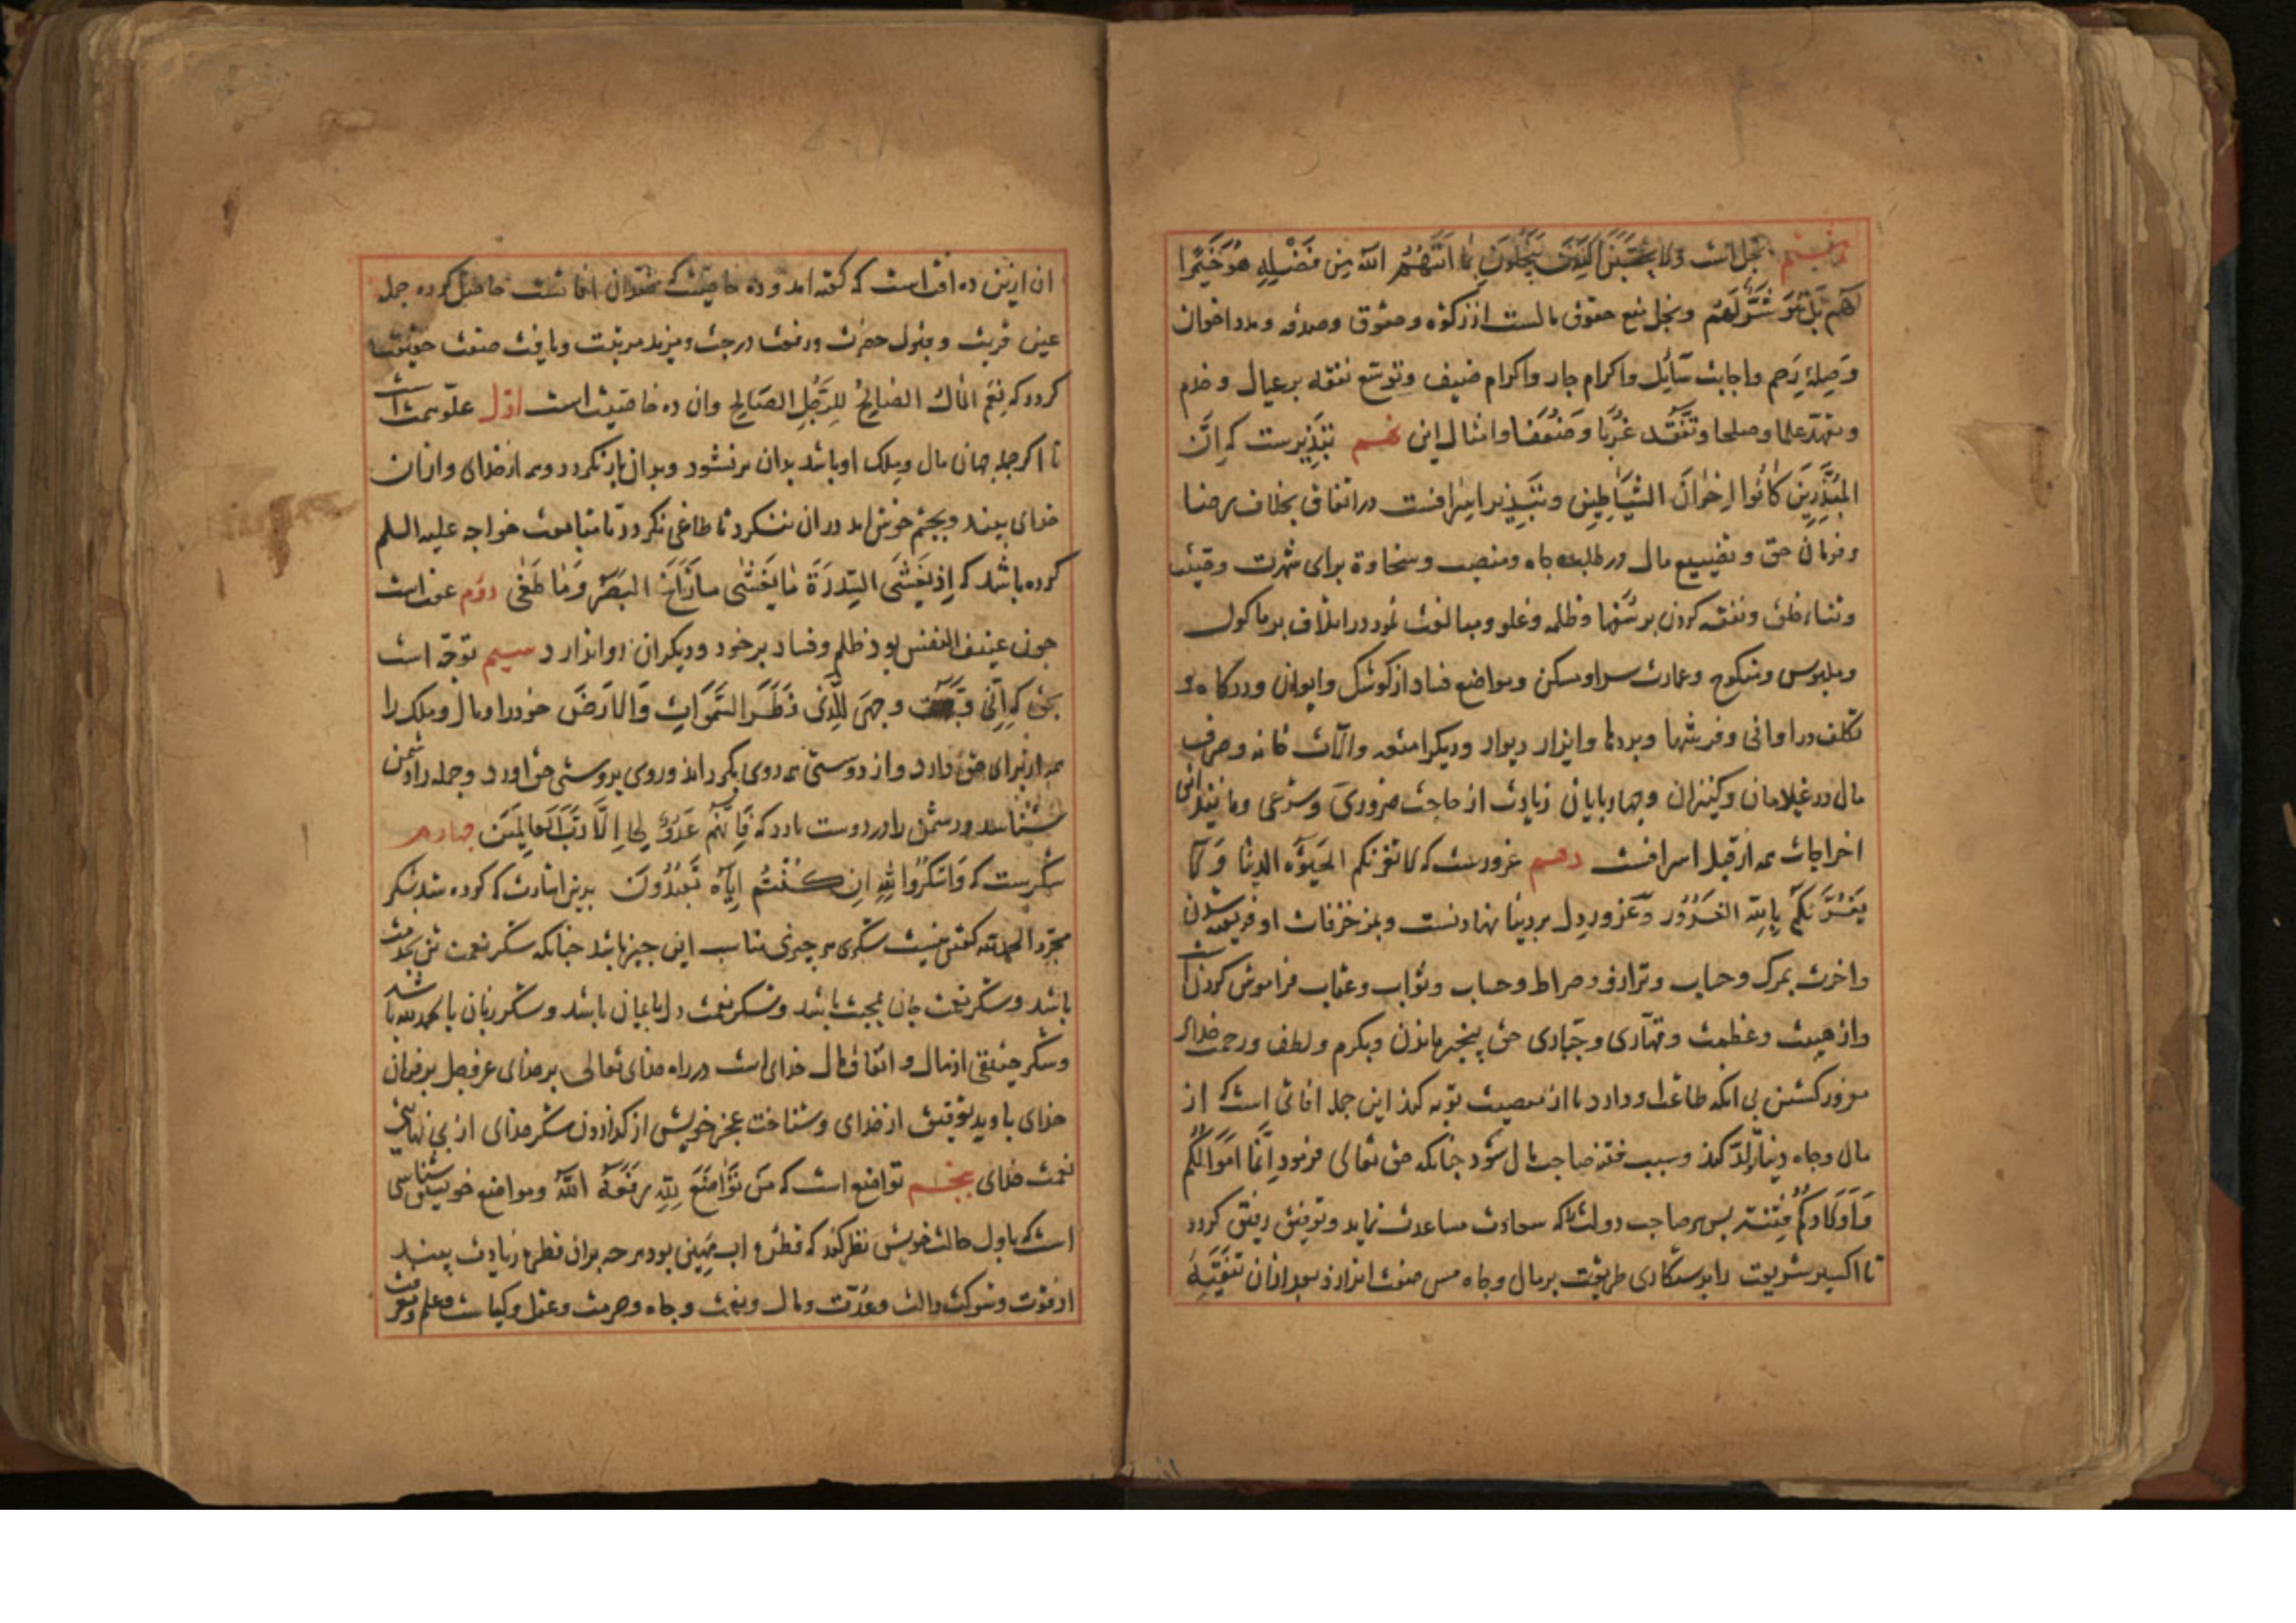 هشتم بخل است ولا یحسبن الذین یبخلون بما اتیهم الله من فضله هو خیرا
لهم بل هو شر لهم وبخل منع حقوق مالست از زکوة وحقوق وصدقه ومدد اخوان
وَصِلهٔ رَحِم واجابت سَآئِل واکرام جار واکرام ضیف وتوسّع نفقه بر عیال وخدم
وتعهّد علما وصلحا وتَفَقُّد غُرَبا وَضُعَفا وامثال این نهم تبذیرست که اِنَّ
المُبَذِّرِینَ کَانُوا اِخْوَانَ الشَّیَاطِینِ وتَبذیر اسرافست در انفاق بخلاف رضا
وفرمان حق وتضییع مال در طلب جاه ومنصب وسخاوة برای شهرت
وثناء خلق ونفقه کردن بر شهوا وظلمه وغلو ومبالغت نمودن در اتلاف بر ماکول
وملبوس ومنکوح وعمارت سرا ومسکن ومواضع فساد از کوشک وایوان ودرکاه و
تکلف در اوانی وفرشها وپردها وایزار دیوار ودیکر امتعه وآلات خانه وصرف
مال در غلامان وکنیزان وچهاربایان زیادت از حاجت ضروری وشرعی وما
اخراجات همه از قبیل اسرافست دهم غرورست که لا تغرنکم الحَیوٰه الدنیا وَلَا
یَغُرَّنَّکُم بِاللهِ الغَرُوْر وغرور دل بر دنیا نهادنست وبمزخرفات او فریفته شدن
واخرت بمرک وحساب وترازو وصراط وحساب وثواب وعقاب فراموش کردن است
واز هیبت وعظمت وقهّاری وجبّاری حق بیخبر ماندن وبکرم ولطف ورحمت خدای
مغرور کشتن بی انکه طاعت او دارد یا از معصیت توبه کند این جمله افاتی است که از
مال وجاه دنیا تولد کند وسبب فتنه صاحب مال شود جنانکه حق تعالی فرمود اِنَّمَا اَمْوَالُکُم
وَاَوْلَادُکُمْ فِتْنَة بس هر صاحب دولت را که سعادت مساعدت نماید وتوفیق رفیق کردد
تا اکسیر شریعت را بدستکاری طریقت بر مال وجاه مس صفت اندازد بعد از ان تنقیه
ان ازین ده افت است که کفته امد وده خاصیت که ضد ان افاتست حاصل کرده جمله
عین قربت وقبول حضرت ورفعت درجت ومزید مرتبت ویافت صفت حقیقت
کردد که نِعْمَ المَالُ الصَالِحُ للِرَّجُلِ الصَالِح وان ده خاصیت است اوّل علوّ همت است
تا اکر جمله جهان مال وملک او باشد بدان سر نشود وبدان باز نکردد وهمه از خدای واز ان
خدای بیند وبجشم خوش امد در ان ننکرد تا طاغی نکردد تا متابعت خواجه علیه السلم
کرده باشد که اِذ یَغْشَی السِّدرَةَ مَا یَغْشٰی مَا زَاغَ البَصَرُ وَمَا طَغٰی دوم عفت است
جون عفیف النفس بود ظلم وفساد بر خود ودیکران روا ندارد سیم توجّه است
بحق که اِنِّی وَجَّهْتُ وجهِیَ لِلَّذِی فَطَرَ السَّمَوَاتِ وَالاَرْضَ خود را ومال وملک را
همه از برای حق دارد واز دوستی همه روی بکرداند وروی بدوستی حق اورد وجمله را دشمن
شناسد ودشمن را در دوست نه ارد که فَاِنَّهُمْ عَدُوٌّ لِی اِلَّا رَبَّ العَالَمِینَ جهارم
شکرست که وَاشکُرُوا لِلهِ اِن کُنْتُم اِیَّاهُ تَعبُدُونَ بدین اشارت که کرده شد بشکر
مجرّد الحمدلله کفتن نیست شکر هر جیزی مناسب این جیز باشد جنانکه شکر نعمت تن بخدمت
باشد وشکر نعمت جان بمحبت باشد وشکر نعمت دل بایمان باشد وشکر زبان بالحمدلله باشد
وشکر حقیقی از مال وانفاق مال خدای است در راه خدای تعالی بر رضای عز وجل بر فرمان
خدای با دید توفیق از خدای وشناخت عجز خویش از کزاردن شکر خدای از بی نهایتی
نعمت خدای پنجم تواضع است که مَن تَوَاضَعَ لِلهِ رَفَعَهُ اللهُ ومواضع خویش شناسی
است که باول حالت خویش نظر کند که قطرهٔ اب مَهِینی بود هر جه بران قطره زیادت بیند
از قوت وشوکت والت وعُدّت ومال ونعمت وجاه وحرمت وعقل وکیاست وعلم ومعرفت